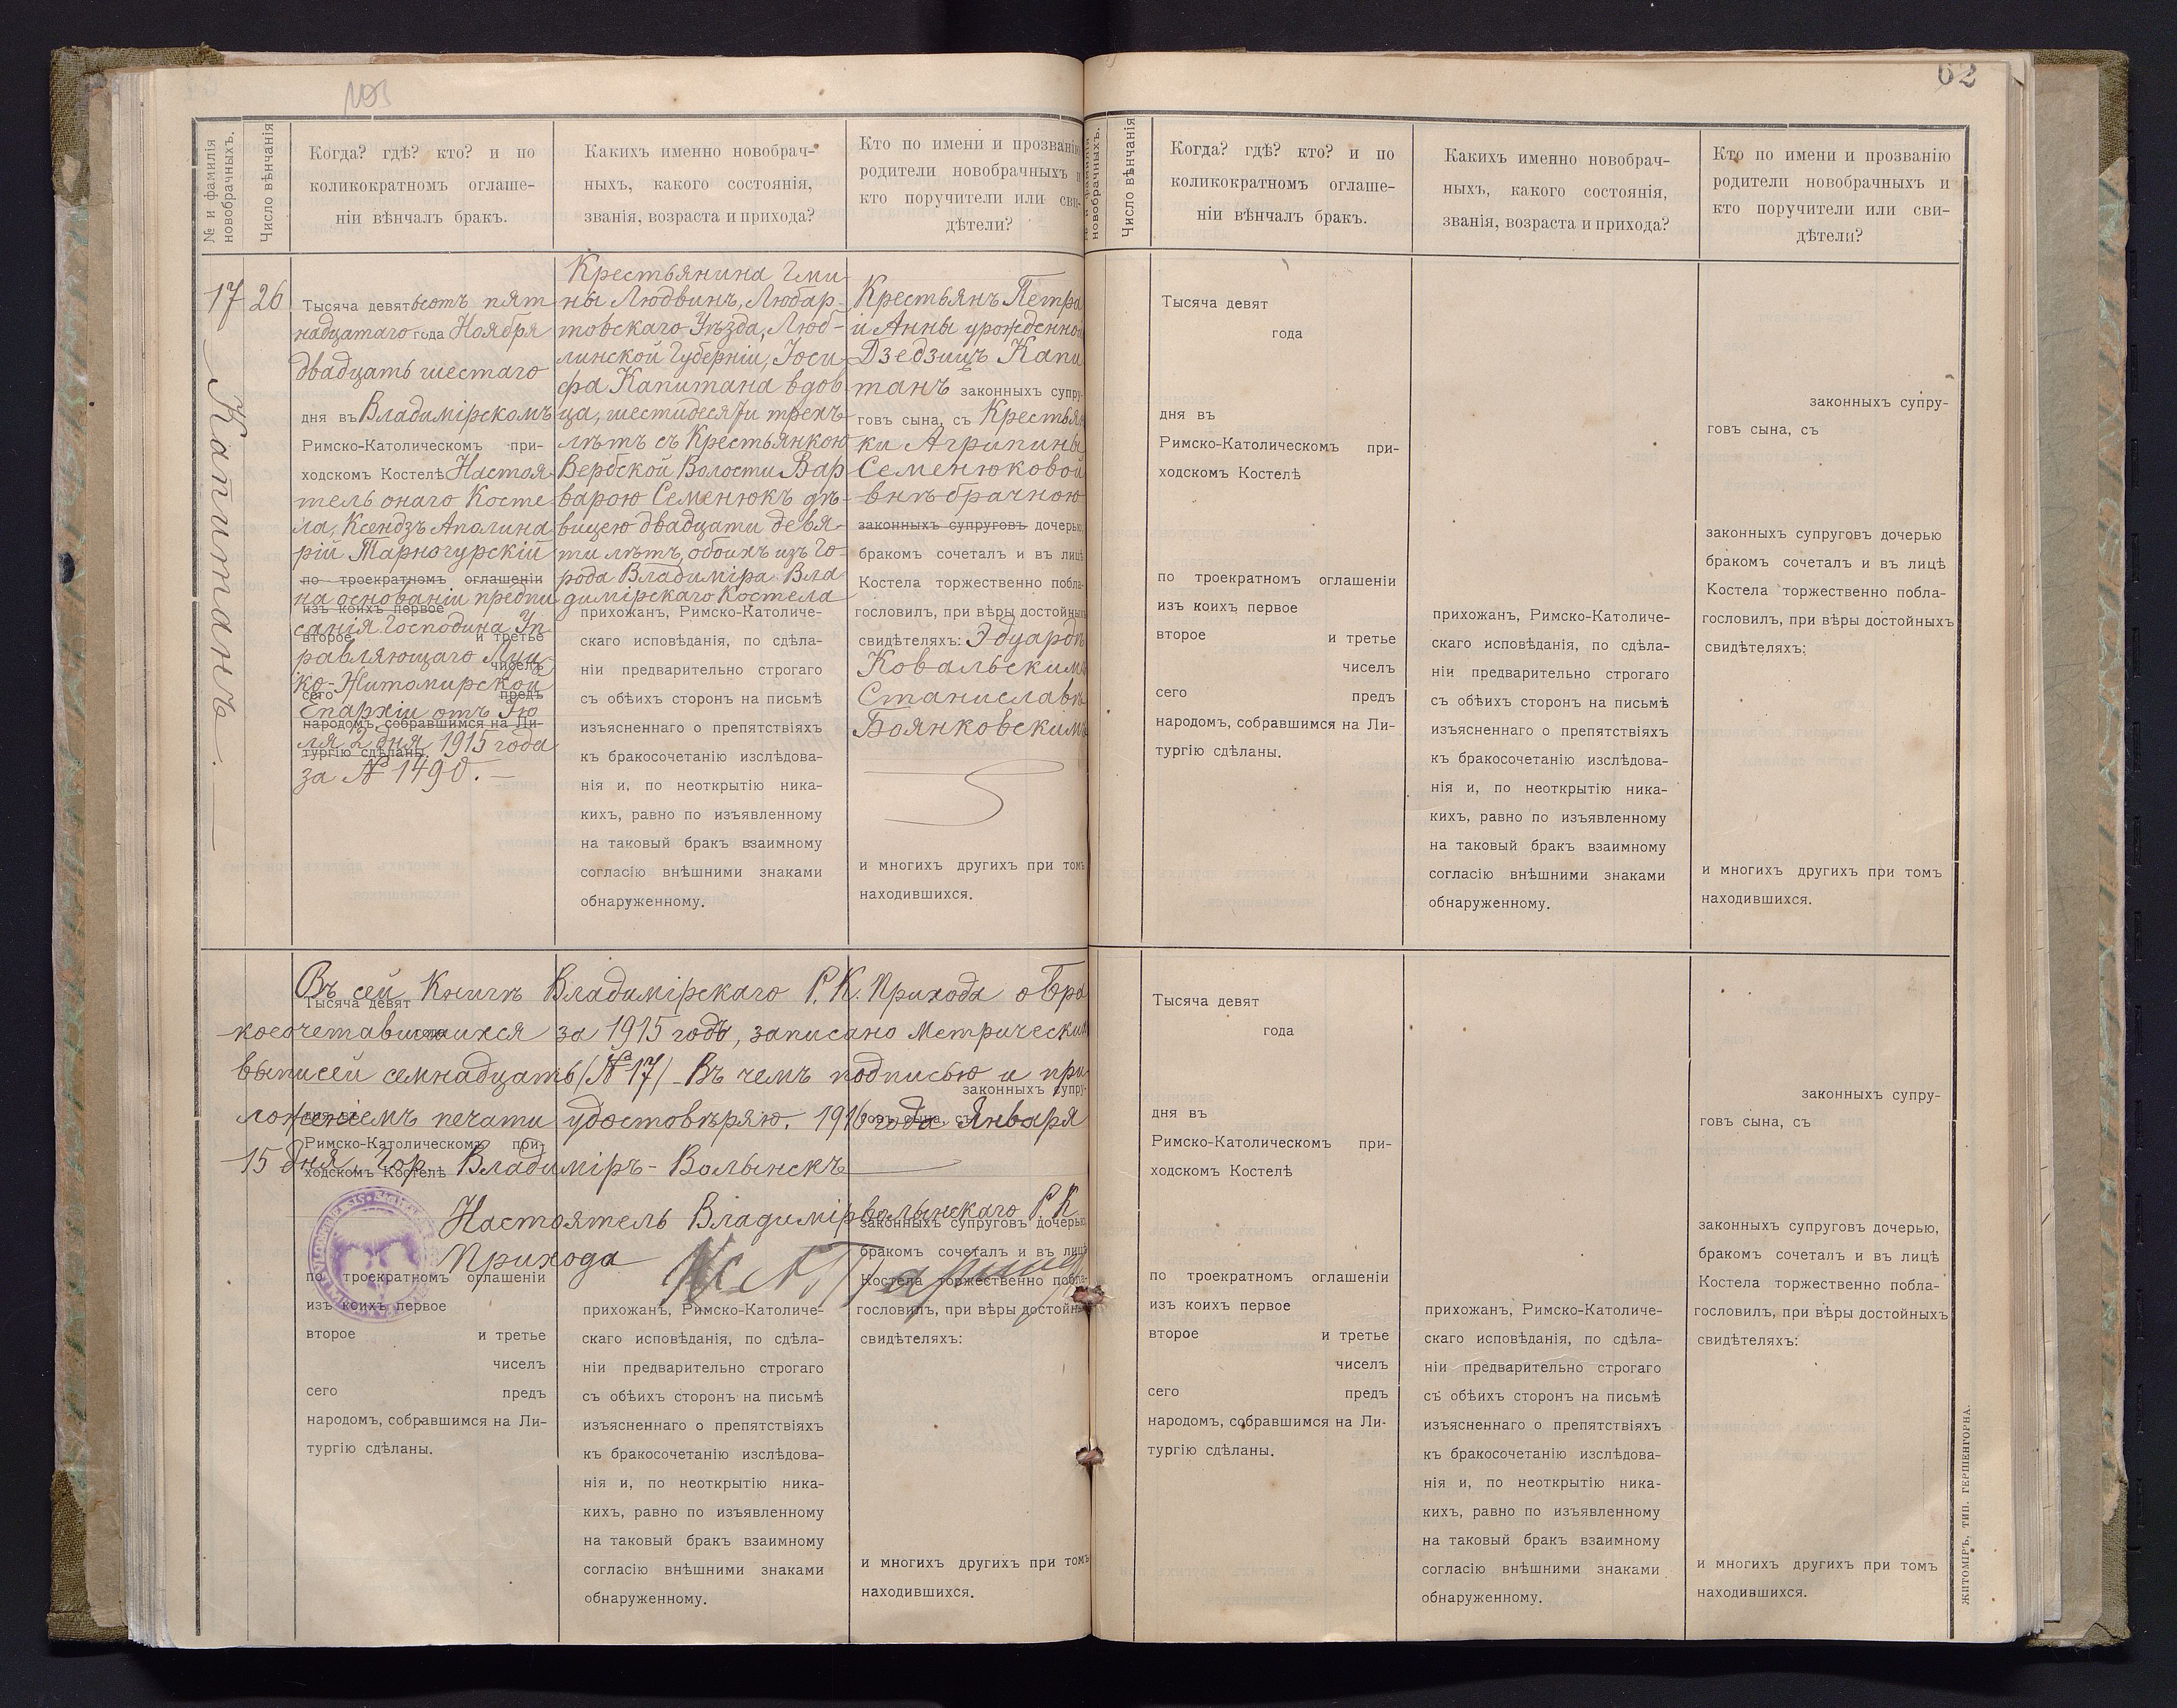 62
№ и фамилія
новобрачныхъ.
Число вѣнчанія
Когда? гдѣ? кто? и по
коликократномъ оглаше-
ніи вѣнчалъ бракъ.
Какихъ именно новобрач-
ныхъ, какого состоянія,
званія, возраста и прихода?
Кто по имени и прозванію
родители новобрачныхъ и
кто поручители или сви-
дѣтели?
17
Капитанъ
26
Тысяча девятьсотъ пят
надцатаго года Ноября
двадцать шестаго
дня въ Владимірскомъ
Римско-Католическомъ при-
ходскомъ Костелѣ Настоя-
тель онаго Косте
ла, Ксендзъ Аполина
рій Тарногурскій
по троекратномъ оглашеніи
на основаніи предпи
изъ коихъ первое
санія Господина Уп
второе и третье
равляющаго Луц-
чиселъ
ко-Житомирской
сего предъ
Епархіи отъ Ію
народомъ, собравшимся на Ли-
ля 2 дня 1915 года
тургію сдѣланы.
за № 1490.
Крестьянина Гми
ны Людвинъ, Любар-
товскаго Уѣзда, Люб-
линской Губерніи, Іоси
фа Капитана вдов
ца, шестидесяти трехъ
лѣтъ съ Крестьянкою
Вербской Волости Вар
варою Семенюкъ дѣ-
вицею двадцати девя-
ти лѣтъ, обоихъ изъ Го-
рода Владиміра Вла
димірскаго Костела
прихожанъ, Римско-Католиче-
скаго исповѣданія, по сдѣла-
ніи предварительно строгаго
съ обѣихъ сторонъ на письмѣ
изъясненнаго о препятствіяхъ
къ бракосочетанію изслѣдова-
нія и, по неоткрытію ника-
кихъ, равно по изъявленному
на таковый бракъ взаимному
согласію внѣшними знаками
обнаруженному.
Крестьянъ Петра
и Анны урожденной
Дзедзицъ Капи
танъ законныхъ супру-
говъ сына, съ Крестьян
ки Агрипины
Семенюковой
внѣбрачною
законныхъ супруговъ дочерью,
бракомъ сочеталъ и въ лицѣ
Костела торжественно побла-
гословилъ, при вѣры достойныхъ
свидѣтеляхъ: Эдуардѣ
Ковальскимъ
Станиславѣ
Боянковскимъ
и многихъ другихъ при томъ
находившихся.
Въ сей Книгѣ Владимірскаго Р. К. Прихода о Бра
Тысяча девят
косочетавшихся за 1915 годъ, записано Метрическихъ
года
выписей семнадцать /№ 17/ Въ чемъ подписью и при
законныхъ супру-
ложеніемъ печати удостовѣряю. 1916 года Января
дня въ
говъ сына, съ
15 дня, Гор. Владиміръ-Волынскъ
Римско-Католическомъ при-
ходскомъ Костелѣ
Настоятель Владимірволынскаго Р К
законныхъ супруговъ дочерью
Прихода
бракомъ сочеталъ и въ лицѣ
по троекратномъ оглашеніи
изъ коихъ первое
второе и третье
чиселъ
сего предъ
народомъ, собравшимся на Ли-
тургію сдѣланы.
прихожанъ, Римско-Католиче-
скаго исповѣданія, по сдѣла-
ніи предварительно строгаго
съ обѣихъ сторонъ на письмѣ
изъясненнаго о препятствіяхъ
къ бракосочетанію изслѣдова-
нія и, по неоткрытію ника-
кихъ, равно по изъявленному
на таковый бракъ взаимному
согласію внѣшними знаками
обнаруженному.
Костела торжественно побла-
гословилъ, при вѣры достойн
свидѣтеляхъ:
и многихъ другихъ при томъ
находившихся.
новобрачныхъ.
Число вѣнчанія
Когда? гдѣ? кто? и по
коликократномъ оглаше-
ніи вѣнчалъ бракъ.
Какихъ именно новобрач-
ныхъ, какого состоянія,
званія, возраста и прихода?
Кто по имени и прозванію
родители новобрачныхъ и
кто поручители или сви-
дѣтели?
Тысяча девят
года
дня въ
Римско-Католическомъ при-
ходскомъ Костелѣ
по троекратномъ оглашеніи
изъ коихъ первое
второе и третье
чиселъ
сего предъ
народомъ, собравшимся на Ли-
тургію сдѣланы.
прихожанъ, Римско-Католиче-
скаго исповѣданія, по сдѣла-
ніи предварительно строгаго
съ обѣихъ сторонъ на письмѣ
изъясненнаго о препятствіяхъ
къ бракосочетанію изслѣдова-
нія и, по неоткрытію ника-
кихъ, равно по изъявленному
на таковый бракъ взаимному
согласію внѣшними знаками
обнаруженному.
законныхъ супру-
говъ сына, съ
законныхъ супруговъ дочерью
бракомъ сочеталъ и въ лицѣ
Костела торжественно побла-
гословилъ, при вѣры достойныхъ
свидѣтеляхъ:
и многихъ другихъ при томъ
находившихся.
Тысяча девят
года
дня въ
Римско-Католическомъ при-
ходскомъ Костелѣ
по троекратномъ оглашеніи
изъ коихъ первое
второе и третье
чиселъ
сего предъ
народомъ, собравшимся на Ли-
тургію сдѣланы.
прихожанъ, Римско-Католиче-
скаго исповѣданія, по сдѣла-
ніи предварительно строгаго
съ обѣихъ сторонъ на письмѣ
изъясненнаго о препятствіяхъ
къ бракосочетанію изслѣдова-
нія и, по неоткрытію ника-
кихъ, равно по изъявленному
на таковый бракъ взаимному
согласію внѣшними знаками
обнаруженному.
законныхъ супру-
говъ сына, съ
законныхъ супруговъ дочерью,
бракомъ сочеталъ и въ лицѣ
Костела торжественно побла-
гословилъ, при вѣры достойныхъ
свидѣтеляхъ:
и многихъ другихъ при томъ
находившихся.
ЖИТОМІРЪ, ТИП. ГЕРШЕНГОРНА.